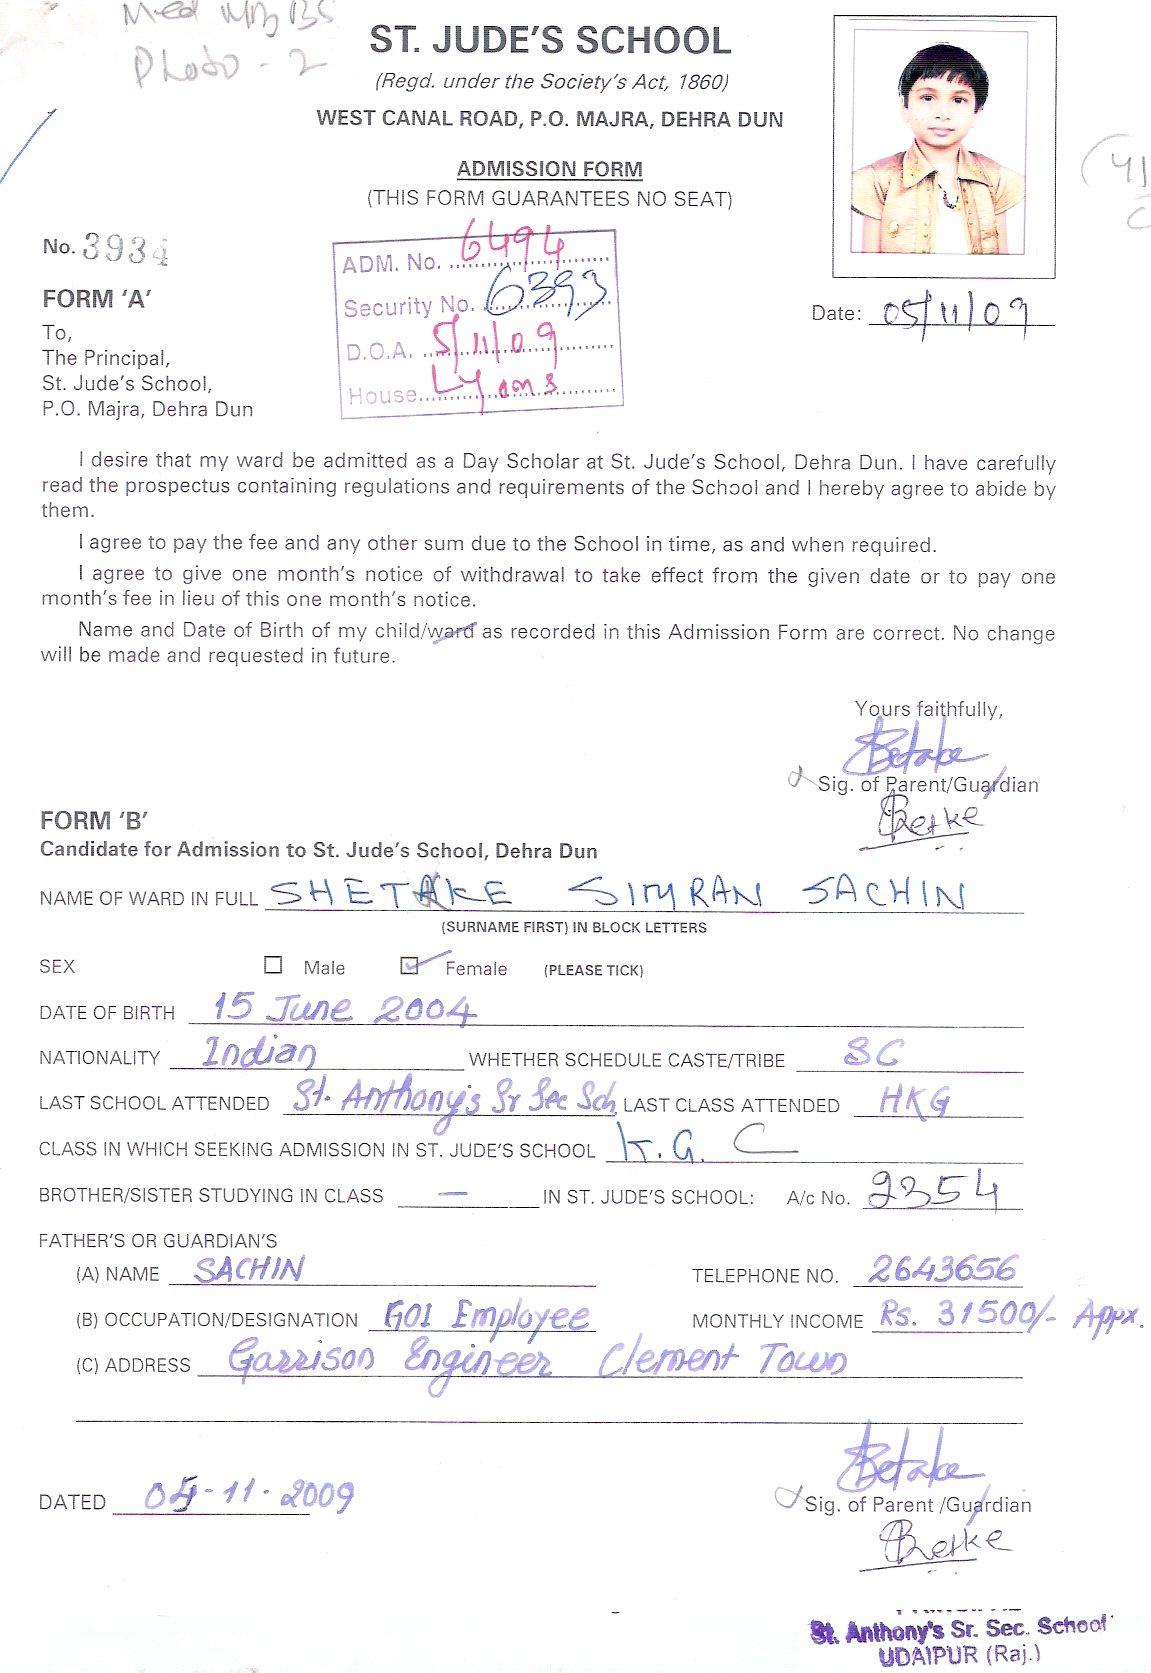 Med
Photo - 2
ST. JUDE'S SCHOOL
(Regd. under the Society's Act, 1860)
WEST CANAL ROAD, P.O. MAJRA, DEHRA DUN
ADMISSION FORM
(THIS FORM GUARANTEES NO SEAT)
41
C
No. 3934
ADM. No. 6494
Security No. 6393
D.O.A. 5/11/09
House Lyons
FORM 'A'
Date: 05/11/09
To,
The Principal,
St. Jude's School,
P.O. Majra, Dehra Dun
I desire that my ward be admitted as a Day Scholar at St. Jude's School, Dehra Dun. I have carefully
read the prospectus containing regulations and requirements of the School and I hereby agree to abide by
them.
I agree to pay the fee and any other sum due to the School in time, as and when required.
I agree to give one month's notice of withdrawal to take effect from the given date or to pay one
month's fee in lieu of this one month's notice.
Name and Date of Birth of my child/ward as recorded in this Admission Form are correct. No change
will be made and requested in future.
Yours faithfully,
Sig. of Parent/Guardian
FORM 'B'
Candidate for Admission to St. Jude's School, Dehra Dun
NAME OF WARD IN FULL SHETAKE SIMRAN SACHIN
(SURNAME FIRST) IN BLOCK LETTERS
SEX Male Female (PLEASE TICK)
DATE OF BIRTH 15 June 2004
NATIONALITY Indian WHETHER SCHEDULE CASTE/TRIBE SC
LAST SCHOOL ATTENDED St. Anthony's Sr Sec Sch. LAST CLASS ATTENDED HKG
CLASS IN WHICH SEEKING ADMISSION IN ST. JUDE'S SCHOOL K.G. C
BROTHER/SISTER STUDYING IN CLASS — IN ST. JUDE'S SCHOOL: A/c No. 2354
FATHER'S OR GUARDIAN'S
(A) NAME SACHIN TELEPHONE NO. 2643656
(B) OCCUPATION/DESIGNATION GOI Employee MONTHLY INCOME Rs. 31500/- Appx.
(C) ADDRESS Garrison Engineer Clement Town
DATED 05-11-2009
Sig. of Parent /Guardian
St. Anthony's Sr. Sec. School
UDAIPUR (Raj.)